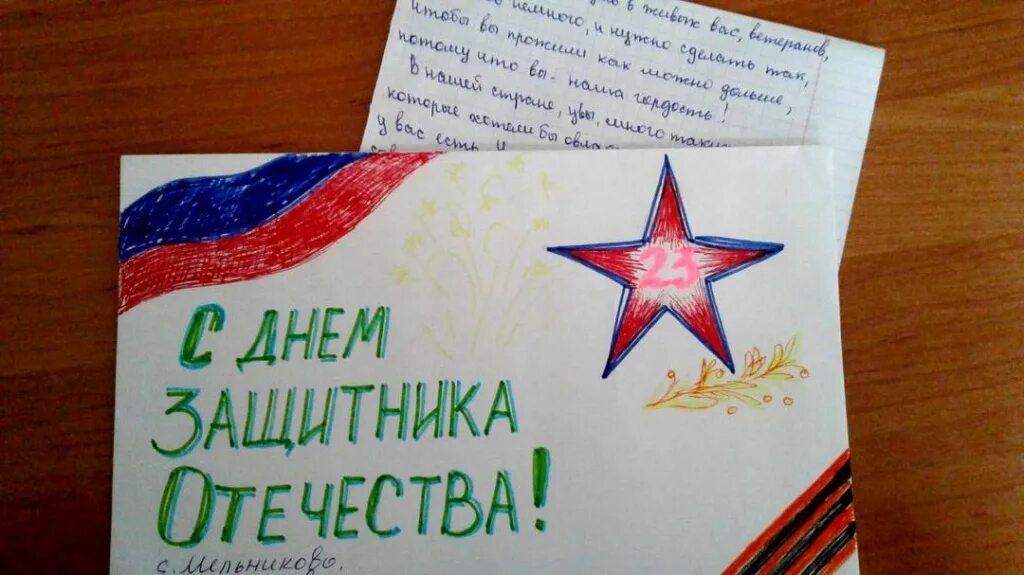 немного, и нужно сделать так,
в живых вас, ветеранов,
чтобы вы прожили как можно дольше,
потому что вы - наша гордость!
В нашей стране, увы, много таких
которые хотели бы
у вас есть. И
23
С ДНЕМ
ЗАЩИТНИКА
ОТЕЧЕСТВА!
с. Мельниково.